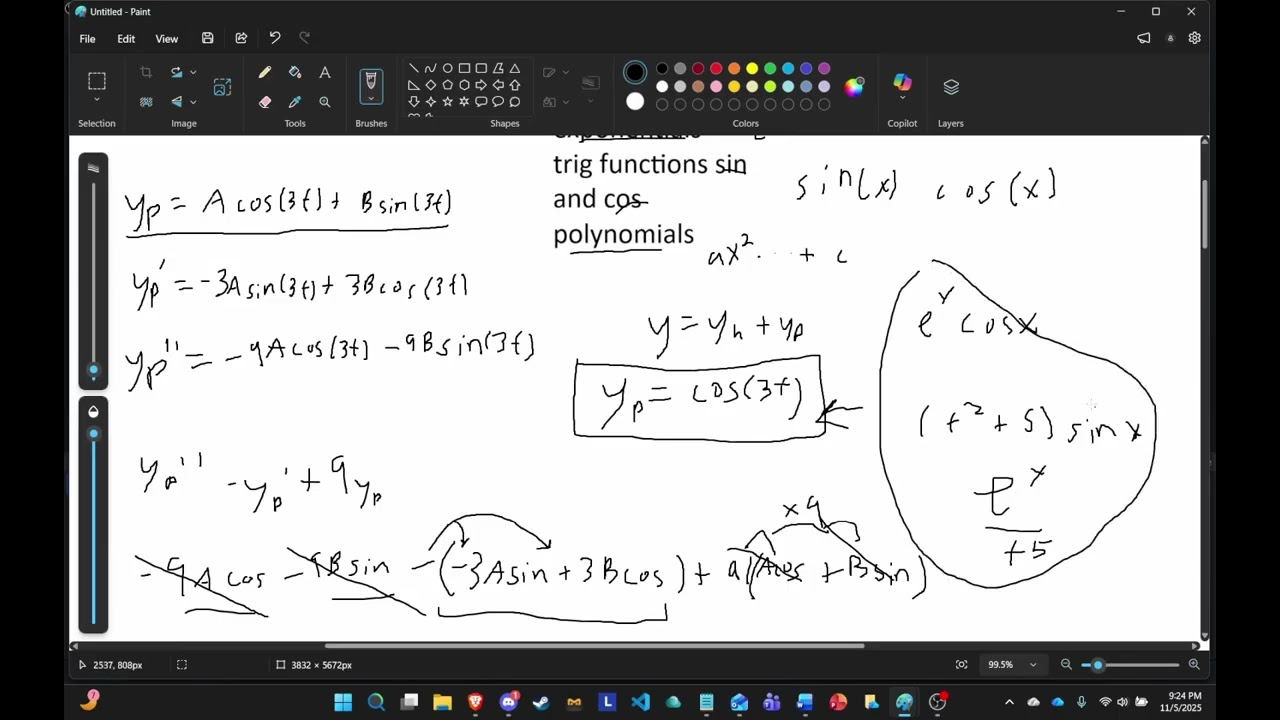 Untitled - Paint
File Edit View
Selection Image Tools Brushes Shapes Colors Copilot Layers
trig functions sin
and cos
polynomials
sin(x) cos(x)
ax² ... + c
y_p = A cos(3t) + B sin(3t)
y_p' = -3A sin(3t) + 3B cos(3t)
y_p'' = -9A cos(3t) - 9B sin(3t)
y = y_h + y_p
y_p = cos(3t)
e^x cos x
(t^2 + 5) sin x
e^x
+5
y_p'' - y_p' + 9y_p
x 9
-9A cos - 9B sin - (-3A sin + 3B cos) + 9(A cos + B sin)
2537, 808px
3832 × 5672px
99.5%
9:24 PM
11/5/2025